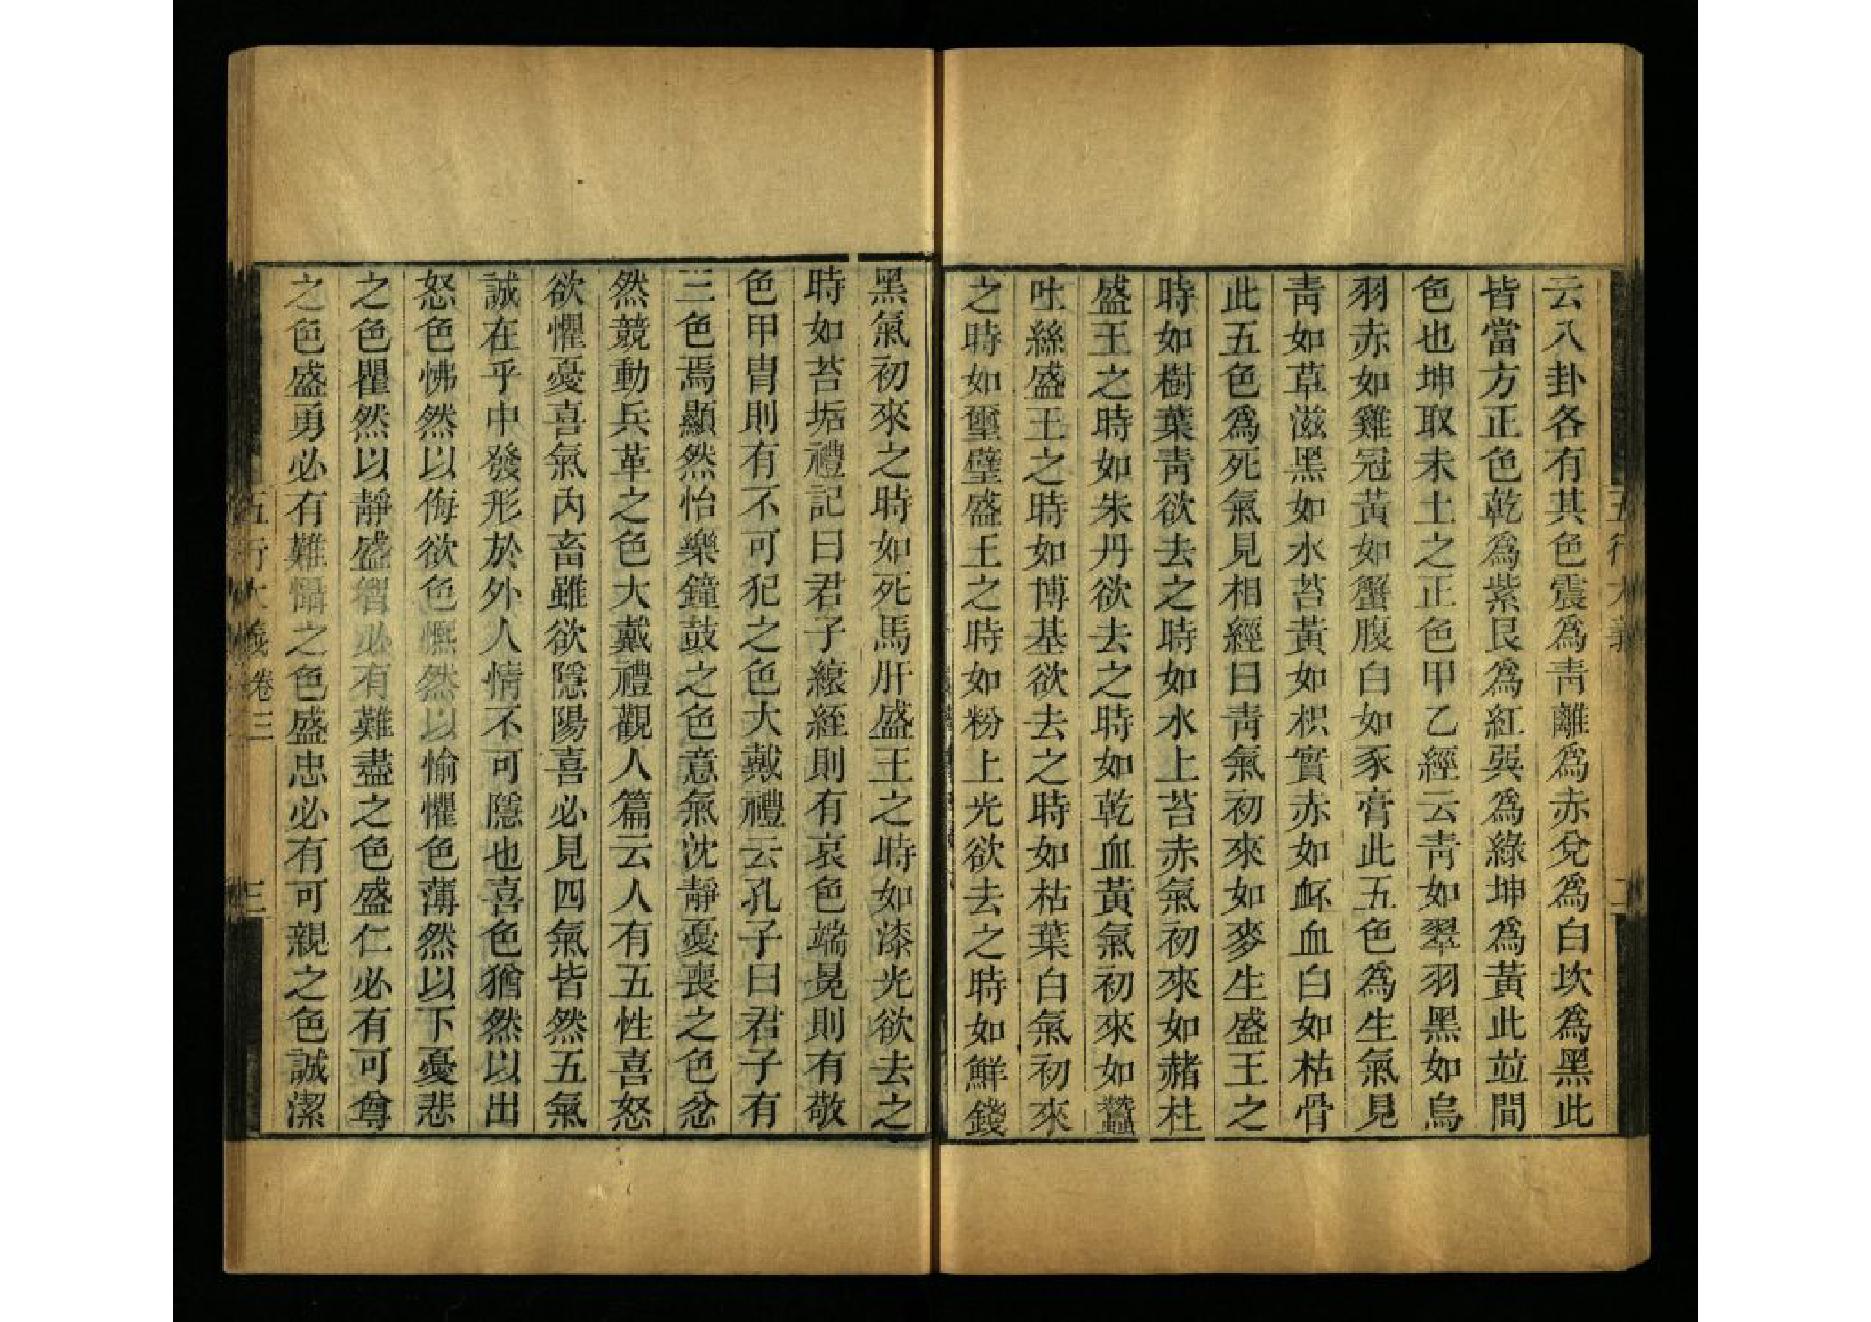 云八卦各有其色震為青離為赤兌為白坎為黑此
皆當方正色乾為紫艮為紅巽為綠坤為黃此並間
色也坤取未土之正色甲乙經云青如翠羽黑如烏
羽赤如雞冠黃如蟹腹白如豕膏此五色為生氣見
青如草滋黑如水苔黃如枳實赤如衃血白如枯骨
此五色為死氣見相經曰青氣初來如麥生盛王之
時如樹葉青欲去之時如水上苔赤氣初來如赭柱
盛王之時如朱丹欲去之時如乾血黃氣初來如蠶
吐絲盛王之時如博基欲去之時如枯葉白氣初來
之時如璽璧盛王之時如粉上光欲去之時如鮮錢
黑氣初來之時如死馬肝盛王之時如漆光欲去之
時如苔垢禮記曰君子縗絰則有哀色端冕則有敬
色甲冑則有不可犯之色大戴禮云孔子曰君子有
三色焉顯然怡樂鐘鼓之色意氣沈靜憂喪之色忿
然競動兵革之色大戴禮觀人篇云人有五性喜怒
欲懼憂喜氣內畜雖欲隱陽喜必見四氣皆然五氣
誠在乎中發形於外人情不可隱也喜色猶然以出
怒色怫然以侮欲色嫗然以愉懼色薄然以下憂悲
之色瞿然以靜盛智必有難盡之色盛仁必有可尊
之色盛勇必有難懾之色盛忠必有可親之色誠潔
五行大義卷三
三